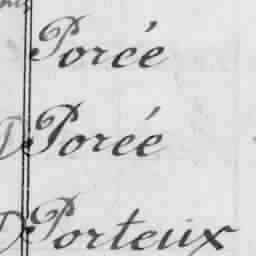 Porcé
Porée
Porteux